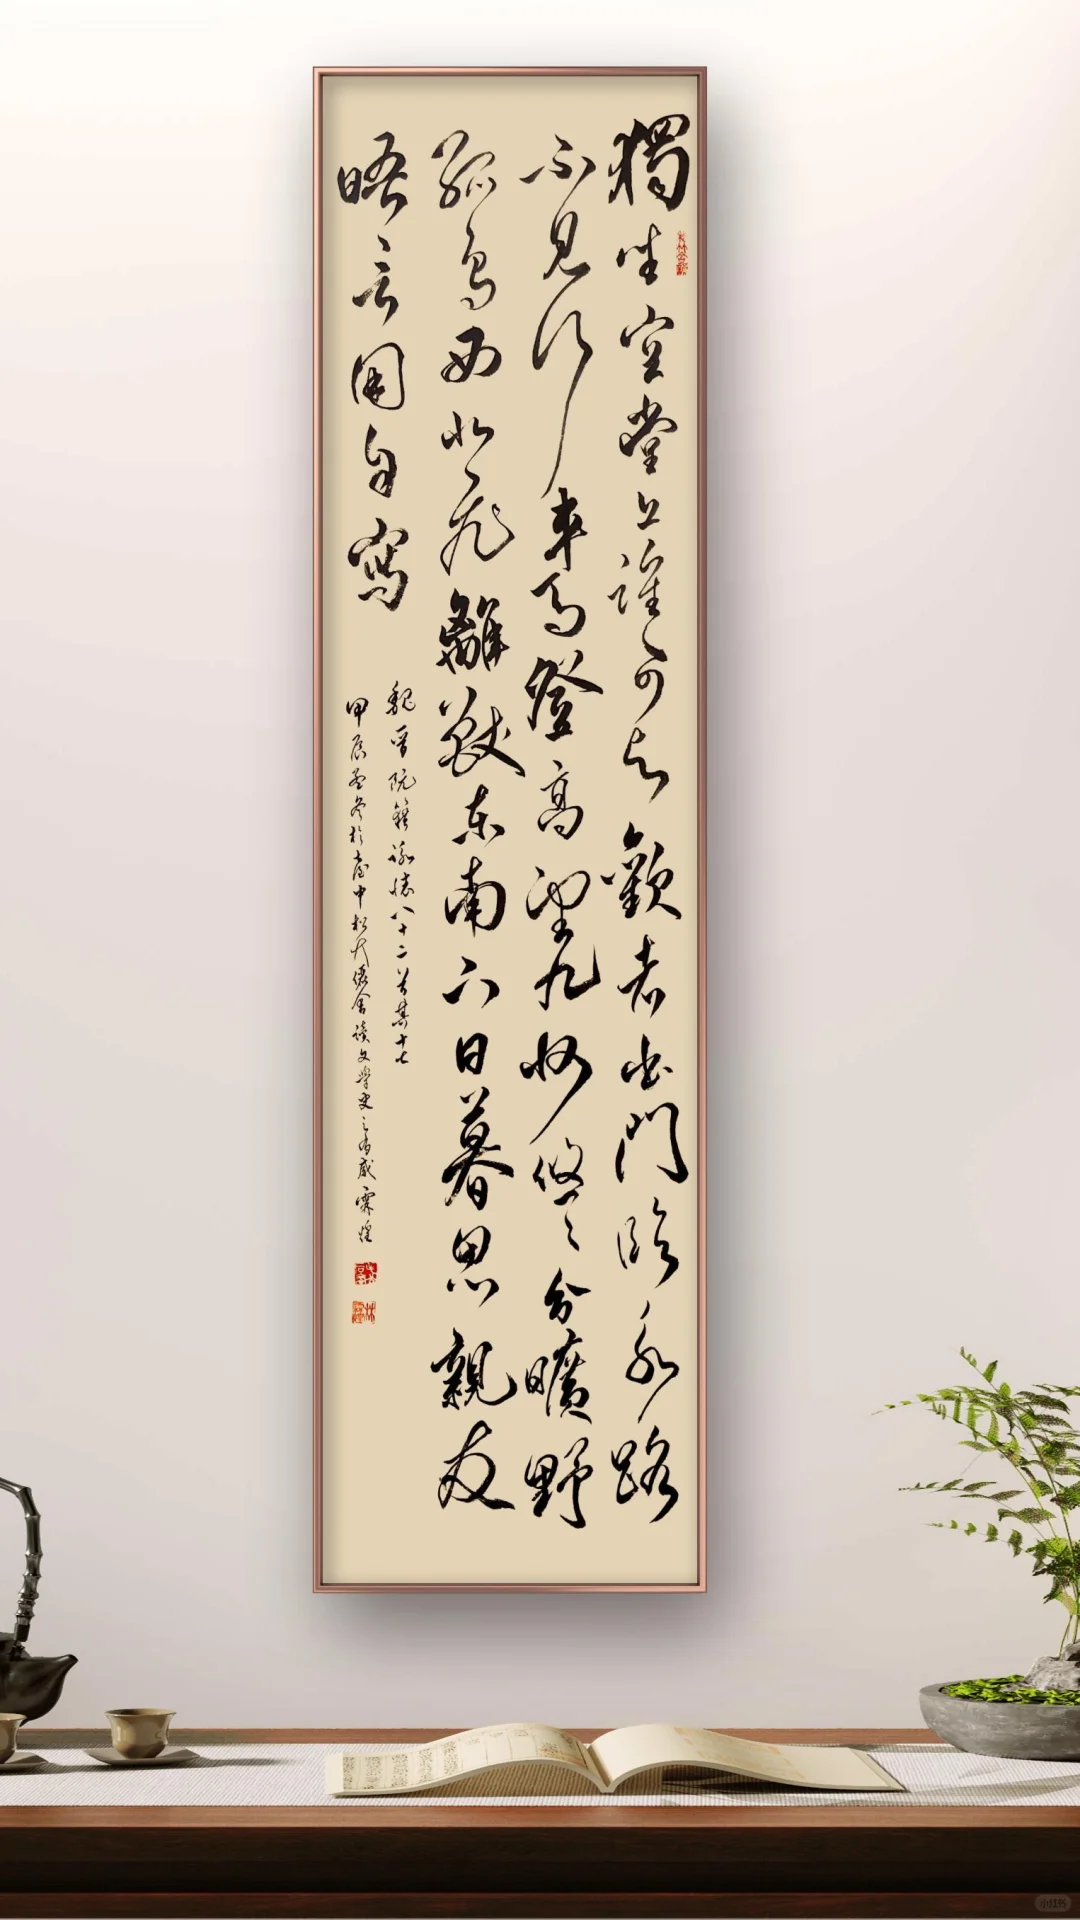 獨坐空堂上誰可與歡者出門臨永路
不見行車馬登高望九州悠悠分曠野
孤鳥西北飛離獸東南下日暮思親友
晤言用自寫
魏晉阮籍詠懷八十二首其十七
甲辰孟冬於臺中松竹
讀文學史之有感霖煌